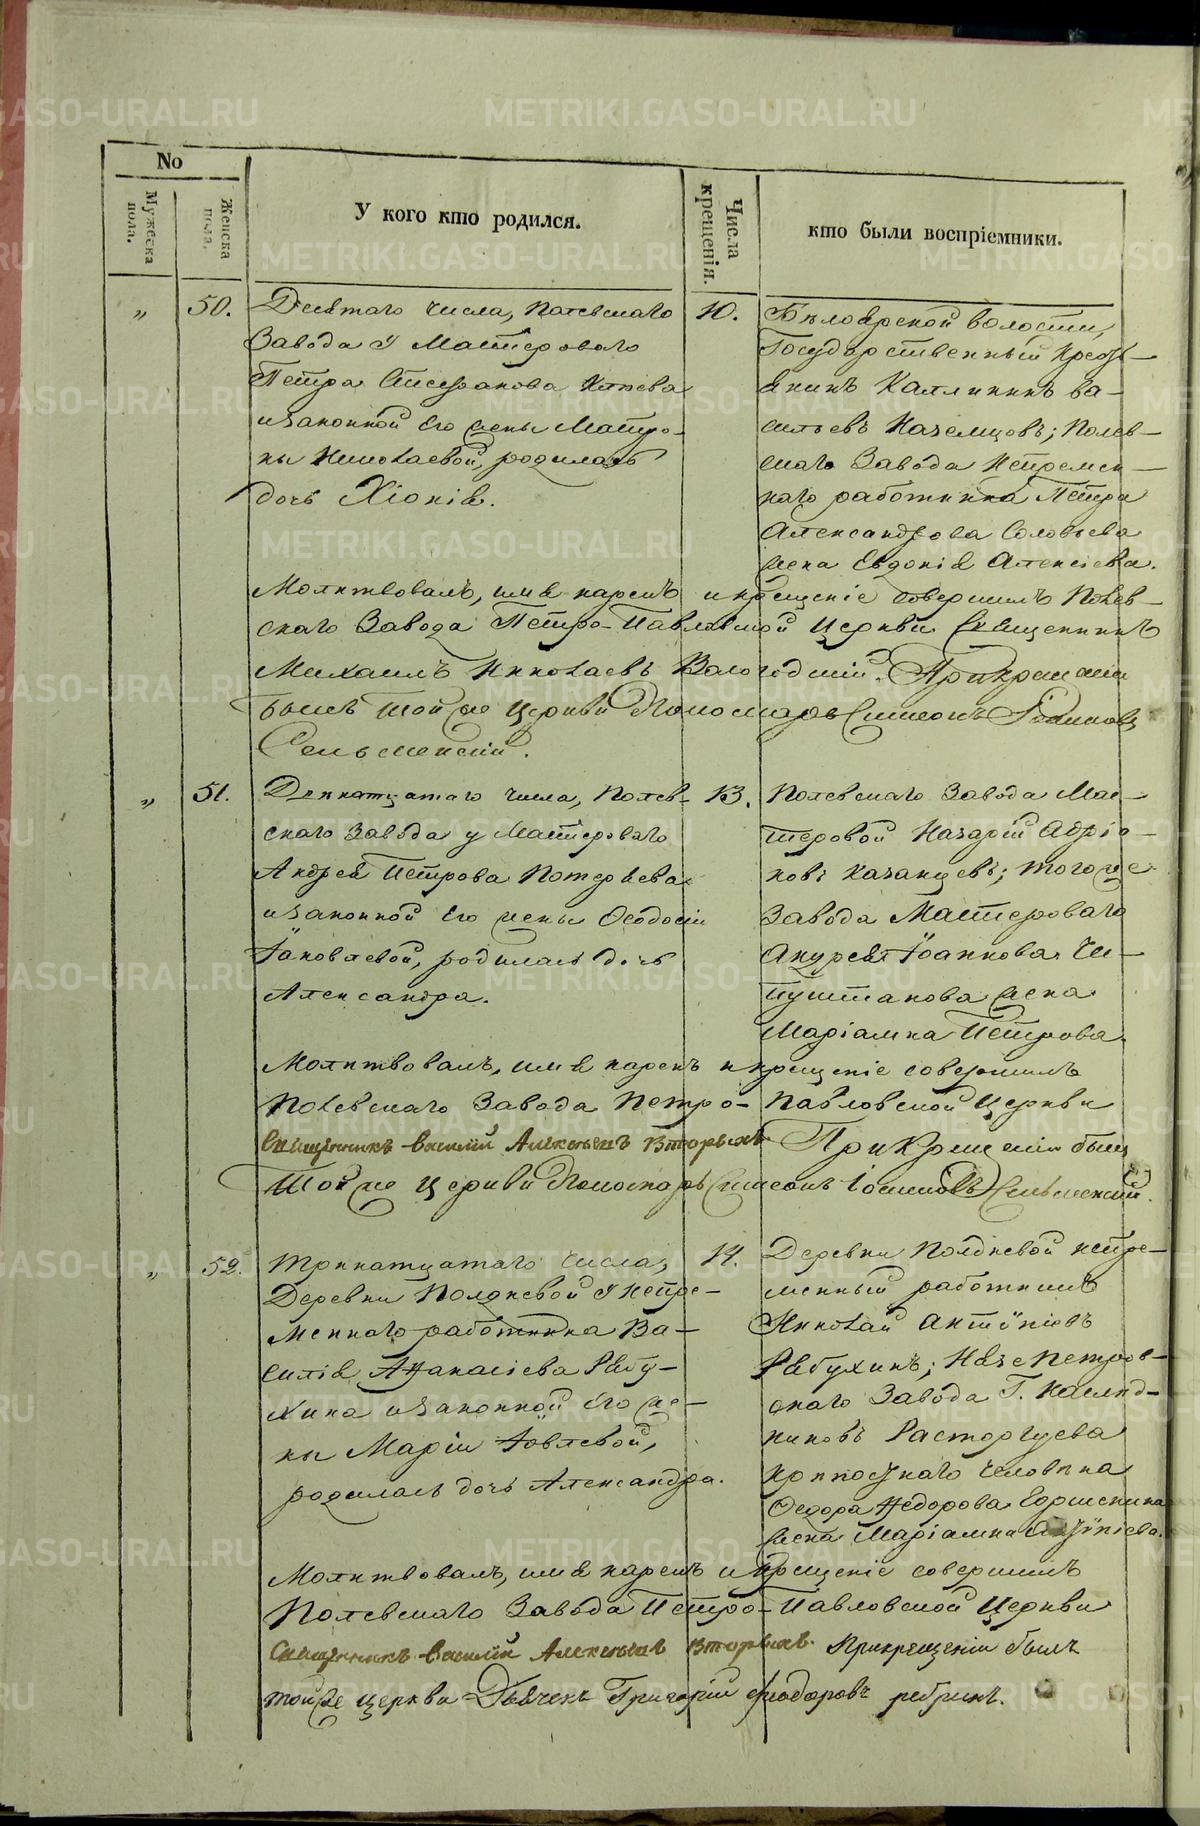 №
Мужеска пола.
Женска пола.
У кого кто родился.
Числа крещенія.
кто были воспріемники.
„ 50.
Десятаго числа, Полевскаго
Завода у Мастероваго
Петра Стефанова
изаконной Его жены Матро-
ны Николаевой, родилась
дочь Хіонія.
10.
Бѣлоярской волости,
Государственный Кресть-
янинъ Каллиникъ Ва-
сильевъ Казанцовъ; Полев-
скаго Завода Непремен-
наго работника Петра
Александрова Соловьева
жена Евдокія Алексіева.
Молитвовалъ, имя нарекъ и крещеніе совершилъ Полев-
скаго Завода Петро-Павловской Церкви Священникъ
Михаилъ Николаевъ Вологодскій. При крещеніи
былъ той же Церкви Пономарь Симеонъ Іоанновъ
Сельменскій.
„ 51.
Двенатцатаго числа, Полев-
скаго Завода у Мастероваго
Андрея Петрова Потеряева
изаконной Его жены Феодосіи
Іаковлевой, родилась дочь
Александра.
13.
Полевскаго Завода Мас-
теровой Назарій Адріа-
новъ Казанцевъ; того же
Завода Мастероваго
Андрея Іоаннова Че-
пуштанова жена
Маріамна Петрова.
Молитвовалъ, имя нарекъ и крещеніе совершилъ
Полевскаго Завода Петро-Павловской Церкви
Священникъ Василій Алексѣевъ Вторыхъ При крещеніи былъ
Той же Церкви Пономарь Симеонъ Іоанновъ Сельменскій.
„ 52.
Тринатцатаго числа,
Деревни Полдневой у Непре-
меннаго работника Ва-
силія Афанасіева Рябу-
хина изаконной Его же-
ны Маріи Іовлевой,
родилась дочь Александра.
14.
Деревни Полдневой непре-
менный работникъ
Николай Антоніевъ
Рябухинъ; Нязепетров-
скаго Завода Г. Наслед-
никовъ Расторгуева
крепостнаго человека
Федора Федорова
жена Маріамна
Молитвовалъ, имя нарекъ и крещеніе совершилъ
Полевскаго Завода Петро-Павловской Церкви
Священникъ Василій Алексѣевъ Вторыхъ. При крещеніи былъ
той же церкви Дьячекъ Григорій Феодоровъ Ребринъ.
METRIKI.GASO-URAL.RU